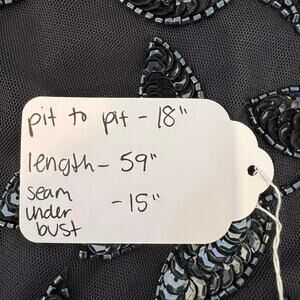 pit to pit - 18"
length - 59"
seam
under - 15"
bust